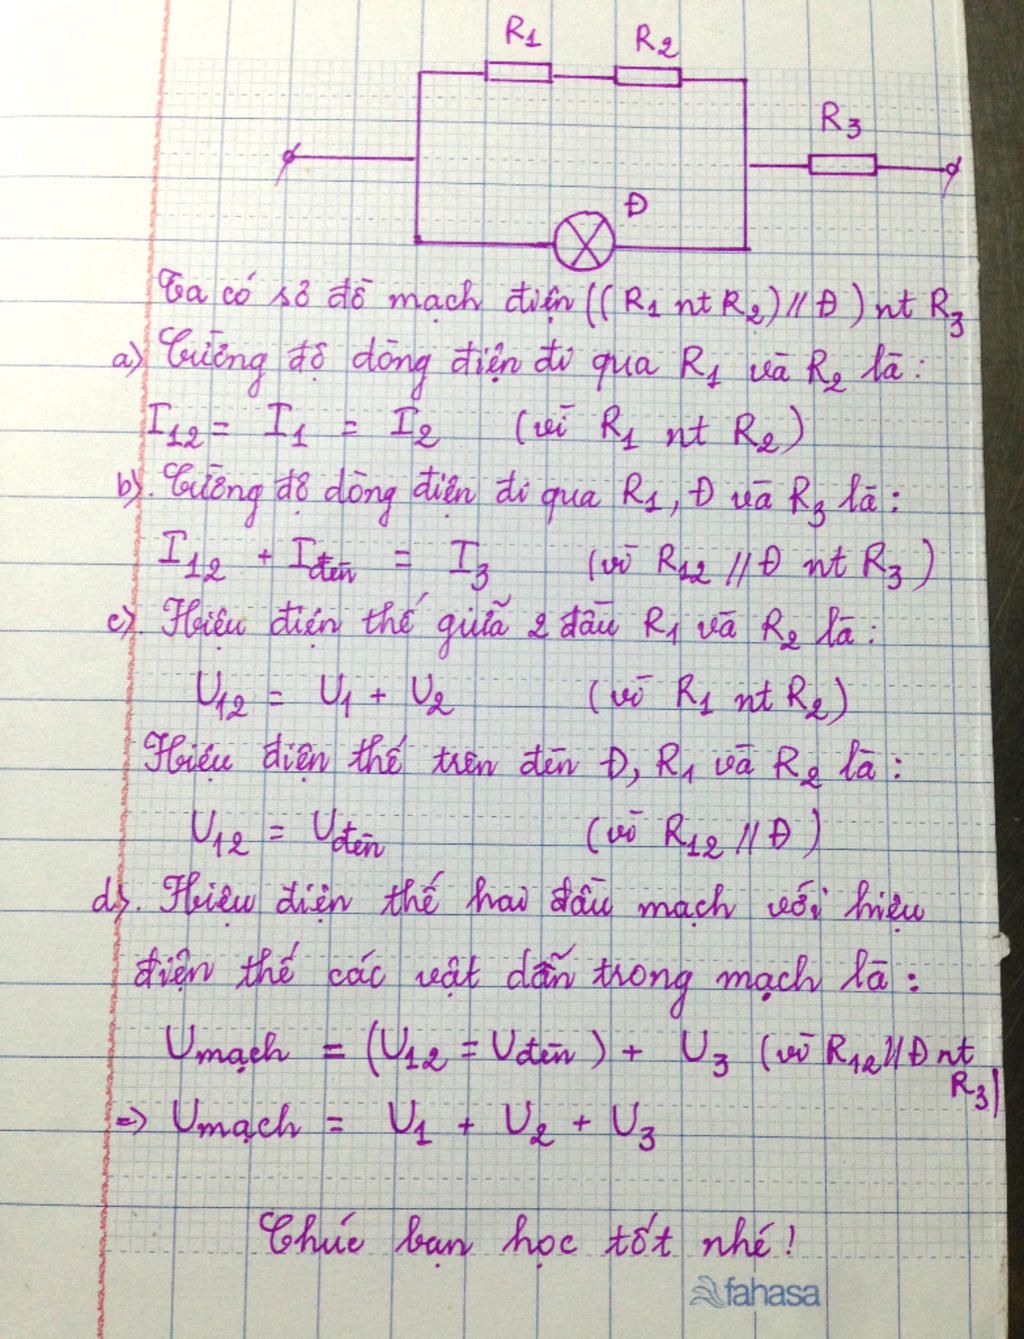 R1 R2
R3
Đ
Ta có sơ đồ mạch điện ((R1 nt R2) // Đ) nt R3
a) Cường độ dòng điện đi qua R1 và R2 là:
I12 = I1 = I2 (vì R1 nt R2)
b). Cường độ dòng điện đi qua R1, Đ và R3 là:
I12 + Iđèn = I3 (vì R12 // Đ nt R3)
c). Hiệu điện thế giữa 2 đầu R1 và R2 là:
U12 = U1 + U2 (vì R1 nt R2)
Hiệu điện thế trên đèn Đ, R1 và R2 là:
U12 = Uđèn (vì R12 // Đ)
d). Hiệu điện thế hai đầu mạch với hiệu
điện thế các vật dẫn trong mạch là:
Umạch = (U12 = Uđèn) + U3 (vì R12 // Đ nt
R3)
=> Umạch = U1 + U2 + U3
Chúc bạn học tốt nhé!
fahasa